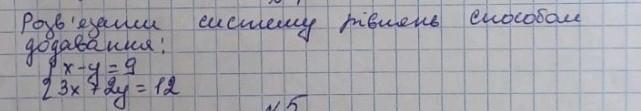 Розв'язати систему рівнень способом
додавання:
{ x-y=9
3x+2y=12
№5